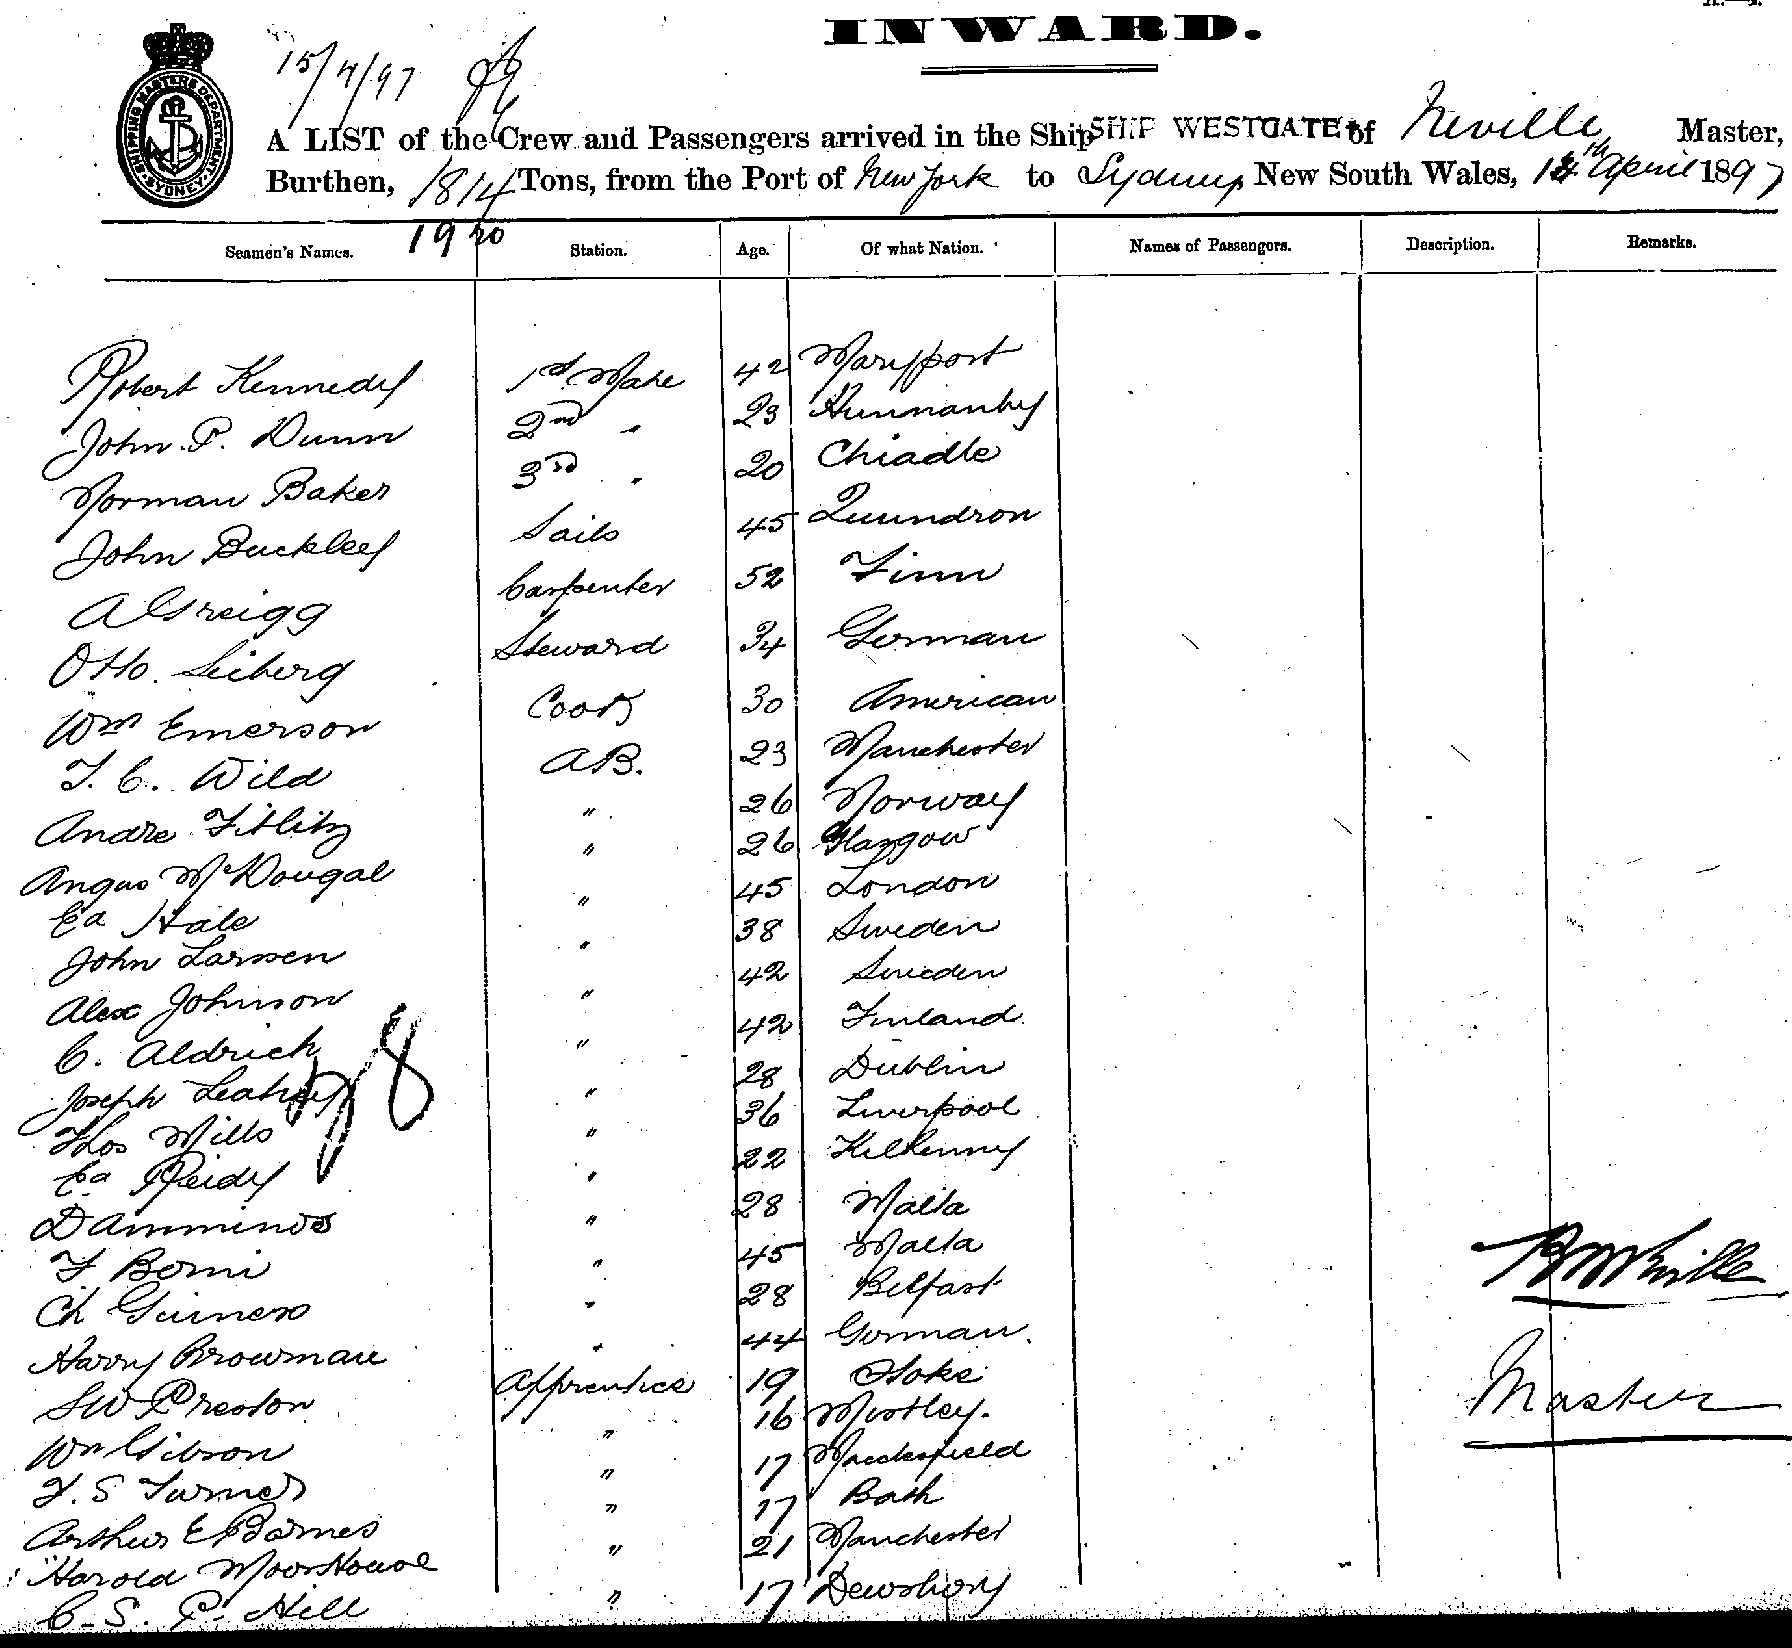 INWARD.
15/4/97
SHIPPING MASTERS DEPARTMENT SYDNEY
A LIST of the Crew and Passengers arrived in the Ship SHIP WESTGATE of Neville, Master,
Burthen, 1814 Tons, from the Port of New York to Sydney, New South Wales, 13th April 1897
Seamen's Names. Station. Age. Of what Nation. Names of Passengers. Description. Remarks.
Robert Kennedy 1st Mate 42 Maryport
John P. Dunn 2nd " 23 Hunmanby
Norman Baker 3rd " 20 Chiadle
John Buckley Sails 45
A Greigg Carpenter 52 Finn
Otto Seiberg Steward 34 German
Wm Emerson Cook 30 American
T. C. Wild A.B. 23 Manchester
Andre " 26 Norway
Angus McDougal " 26 Glasgow
Ed Hale " 45 London
John Larsen " 38 Sweden
Alex Johnson " 42 Sweden
C. Aldrich " 42 Finland
Joseph Leahey " 28 Dublin
Thos Mills " 36 Liverpool
Ed Reidy " 22 Kilkenny
D " 28 Malta
F " 45 Malta
Ch Guiness " 28 Belfast
Harry " 44 German.
S W Preston Apprentice 19 Stoke
Wm Gibson " 16
F. S Turner " 17 Macclesfield
Arthur E Barnes " 17 Bath
Harold Moorhouse " 21 Manchester
C. S. P. Hill " 17 Dewsbury
Neville
Master